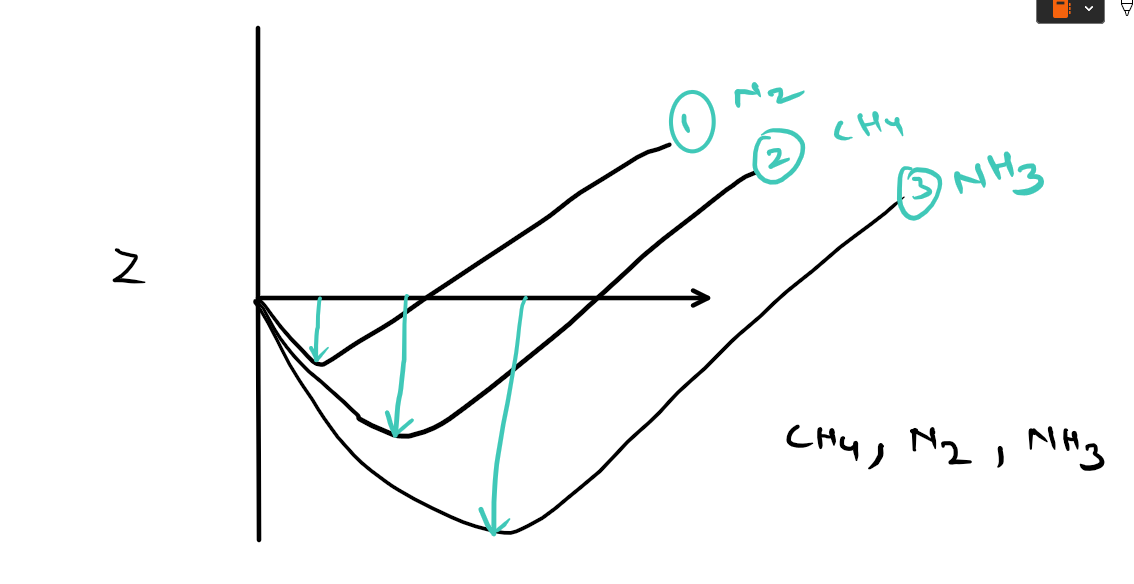 ① N2
② CH4
③ NH3
Z
CH4, N2, NH3